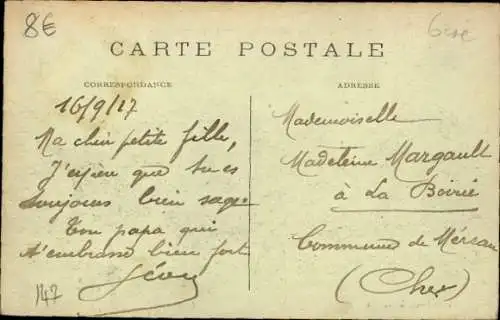 8€
CARTE POSTALE
CORRESPONDANCE
ADRESSE
16/9/17
Ma chère petite fille,
J'espère que tu es
toujours bien sage.
Ton papa qui
t'embrasse bien fort
Mademoiselle
Madeleine Margault
à La Boirie
Commune de Méreau
(Cher)
147